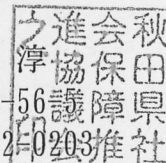 秋田県社
会保障推
進協議
淳
2-0203